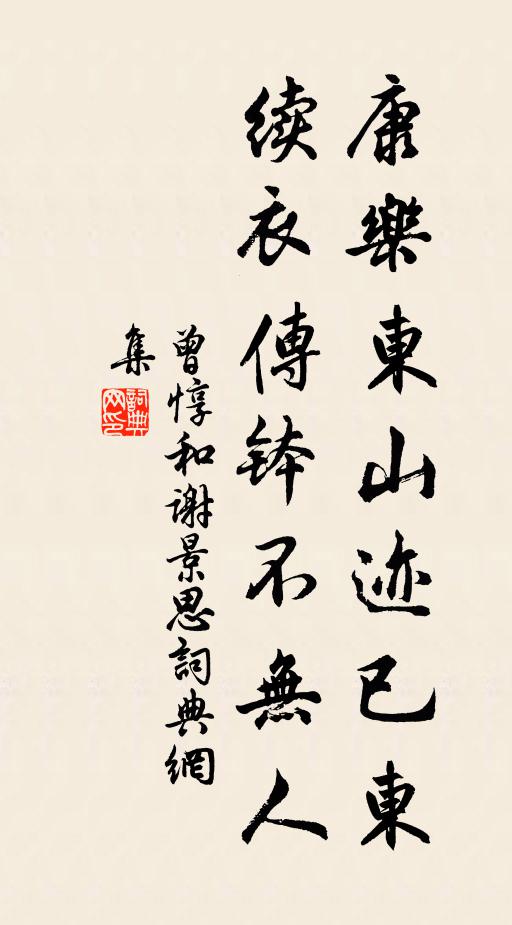 康樂東山迹已東
续衣傳钵不無人
曾惇和谢景思詞典網
集
詞典网印